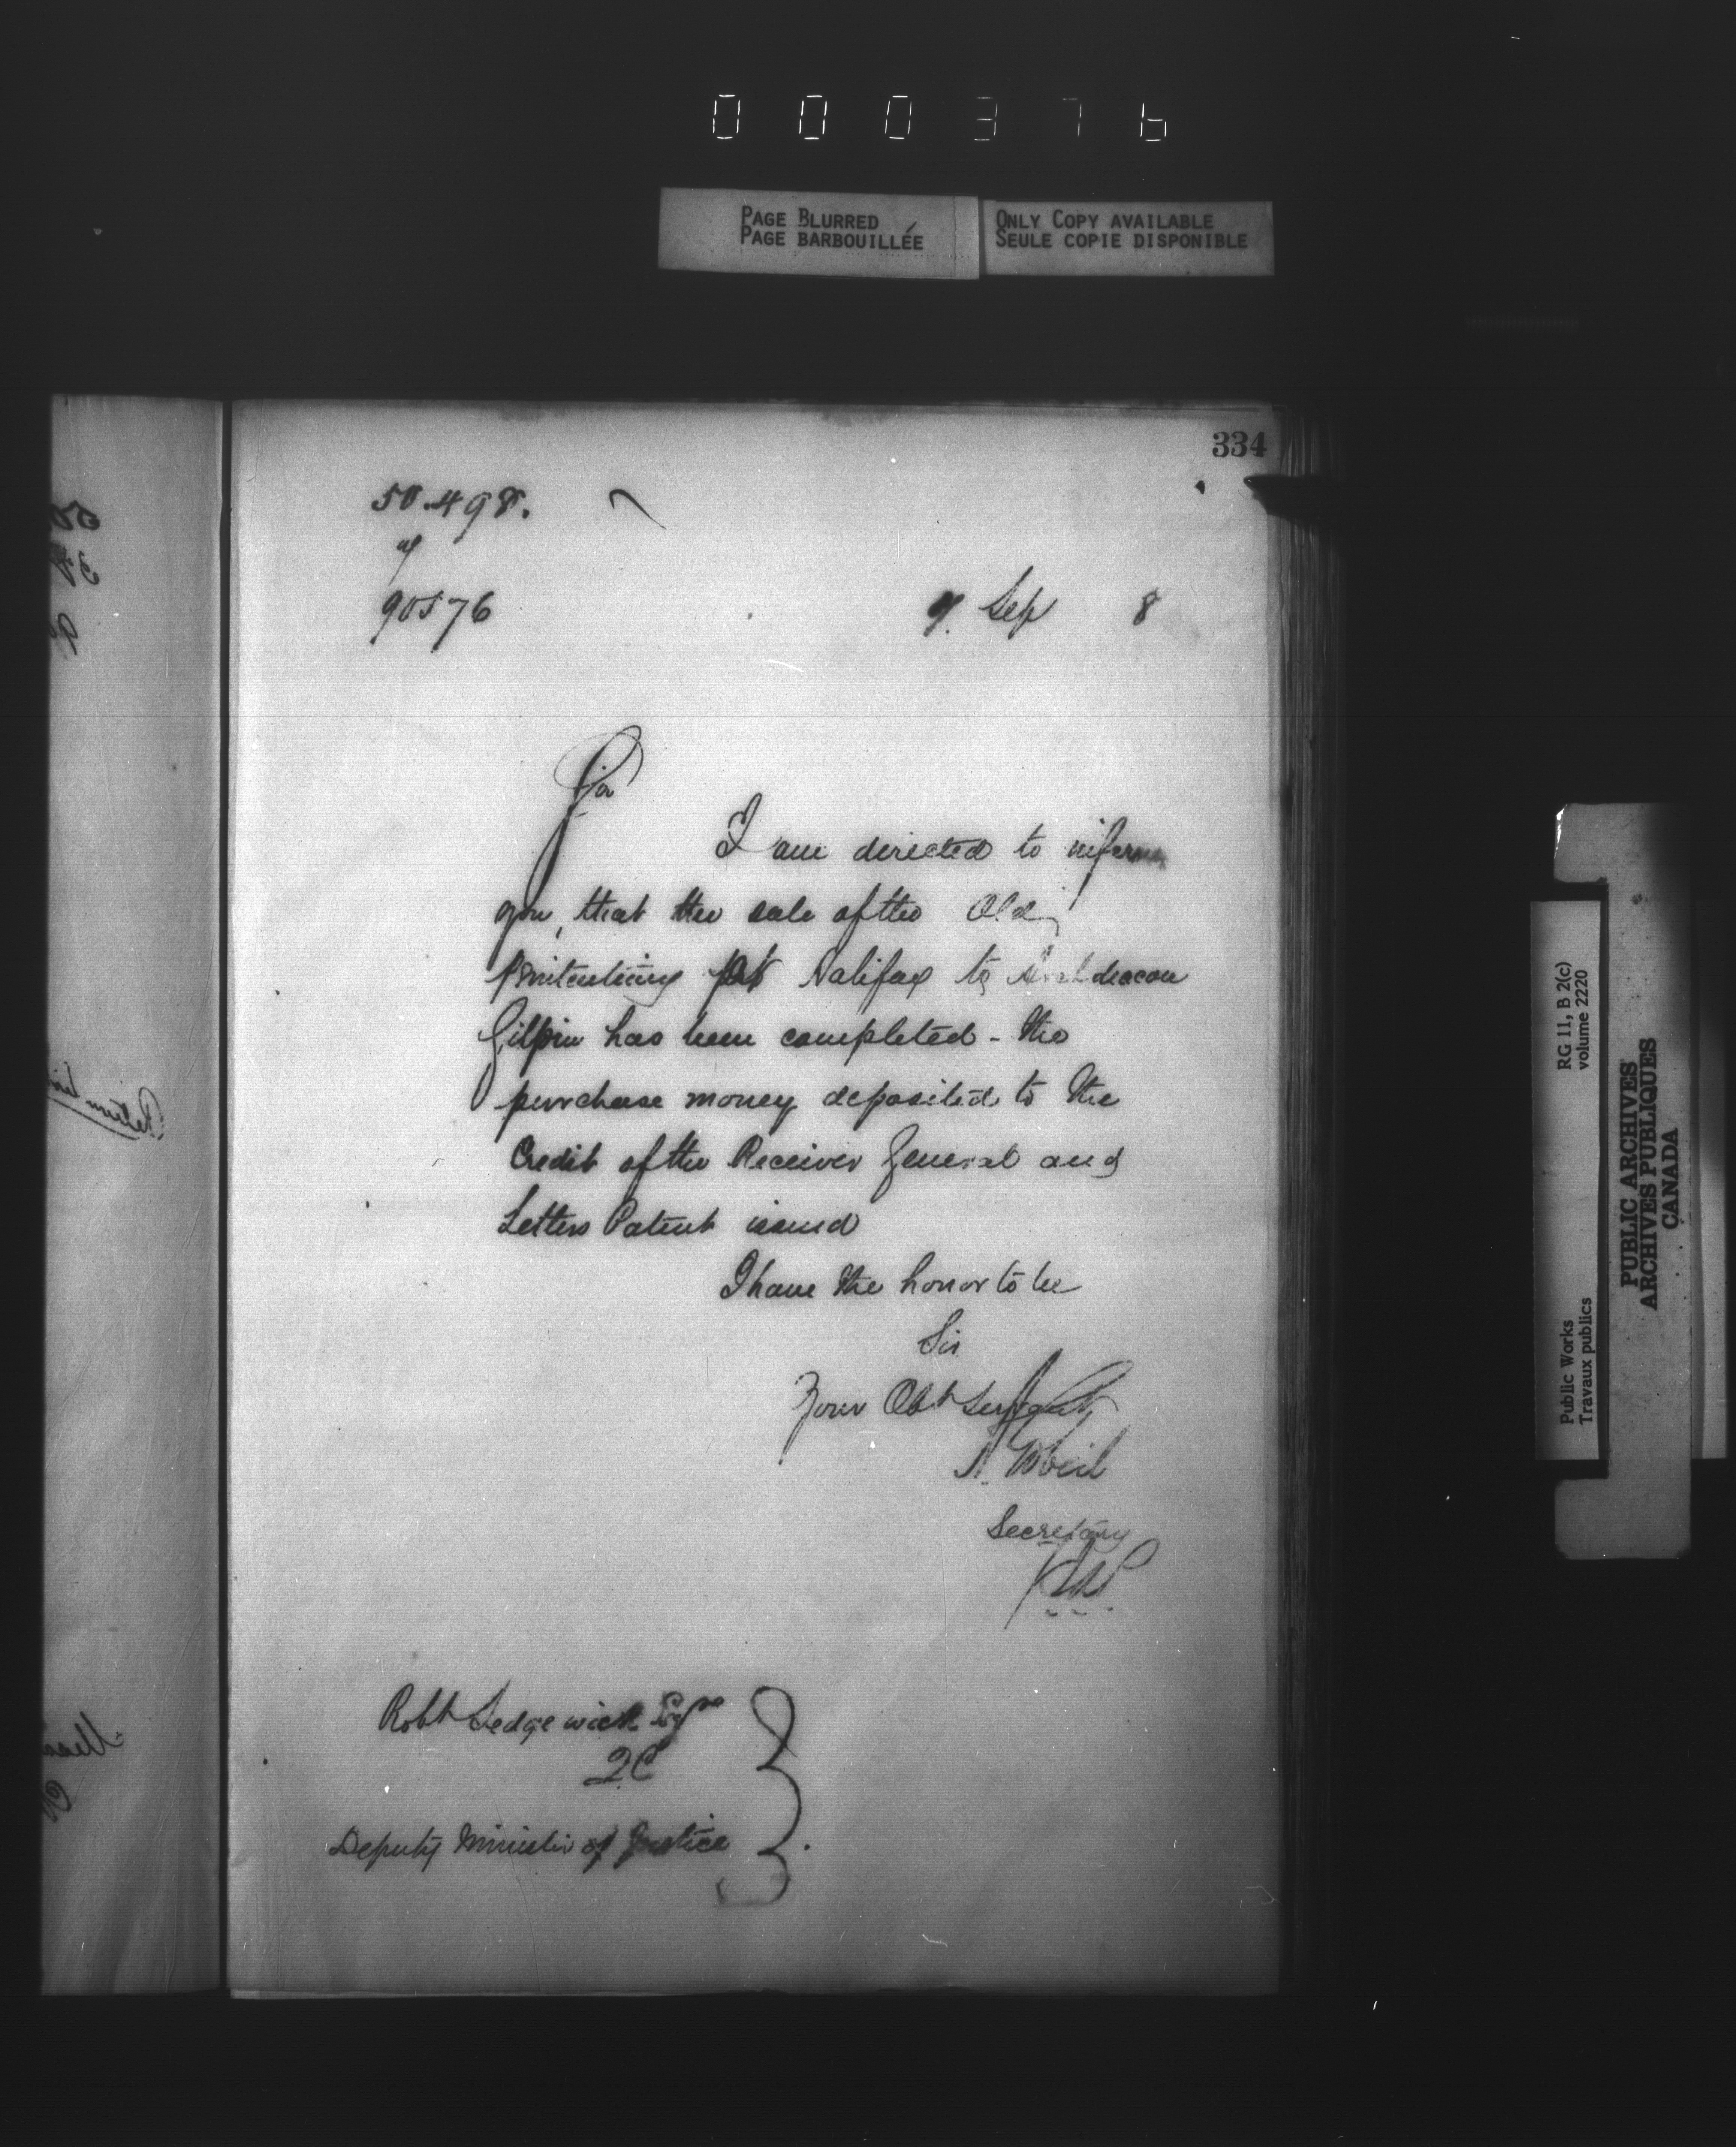 000376
PAGE BLURRED
PAGE BARBOUILLÉE
ONLY COPY AVAILABLE
SEULE COPIE DISPONIBLE
334
50.498.
90576
9. Sep 8
Sir
I am directed to inform
you, that the sale of the Old
Penitentiary at Halifax to Archdeacon
Gilpin has been completed - the
purchase money deposited to the
Credit of the Receiver General and
Letters Patent issued
I have the honor to be
Sir
Your Obt Servant
Secretary
Robt Sedgewick Esqre
QC
Deputy Minister of Justice
RG 11, B 2(c)
volume 2220
Public Works
Travaux publics
PUBLIC ARCHIVES
ARCHIVES PUBLIQUES
CANADA